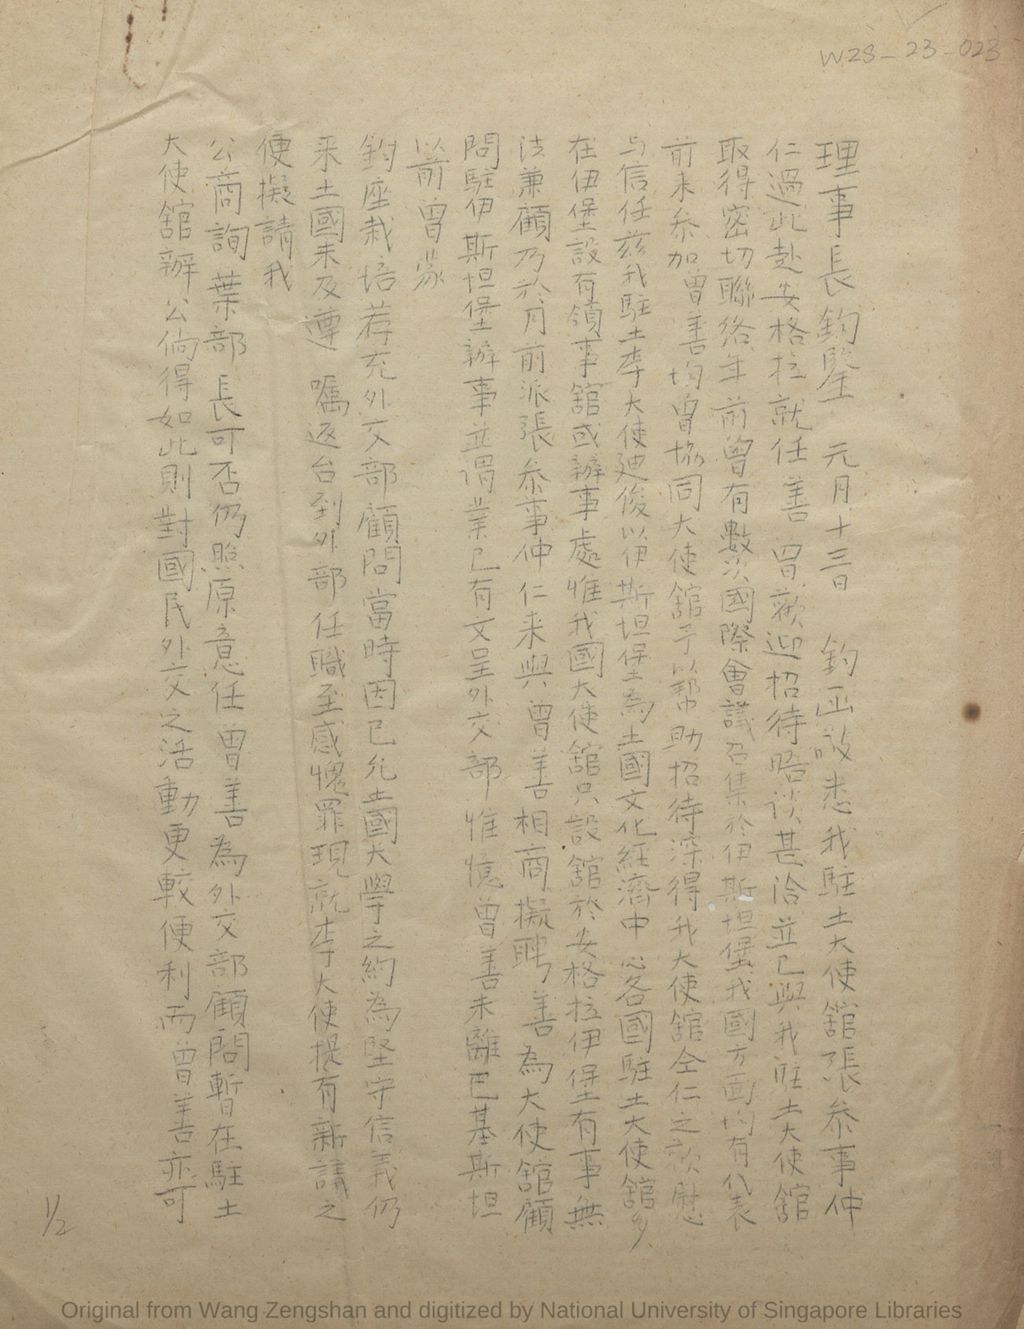 WZS-23-023
理事長鈞鑒 元月十三日 鈞函敬悉我駐土大使舘張參事仲
仁過此赴安格拉就任善 曾歡迎招待晤談甚洽並已與我駐土大使舘
取得密切聯絡年前曾有數次國際會議召集於伊斯坦堡我國方面均有代表
前来參加曾善均曾協同大使舘予以幫助招待深得我大使舘仝仁之欽慰
与信任茲我駐土李大使廸俊以伊斯坦堡為土國文化經濟中心各國駐土大使舘多
在伊堡設有領事舘或辦事處惟我國大使舘只設舘於安格拉伊堡有事無
法兼顧乃於月前派張參事仲仁来與曾善相商擬聘善為大使舘顧
問駐伊斯坦堡辦事並謂業已有文呈外交部惟憶曾善未離巴基斯坦
以前曾蒙
鈞座栽培荐充外交部顧問當時因已允土國大學之約為堅守信義仍
来土國未及遵 囑返台到外部任職至感愧罪現就李大使提有新請之
便擬請我
公商詢葉部長可否仍照原意任曾善為外交部顧問暫在駐土
大使舘辦公倘得如此則對國民外交之活動更較便利而曾善亦可
1/2
Original from Wang Zengshan and digitized by National University of Singapore Libraries